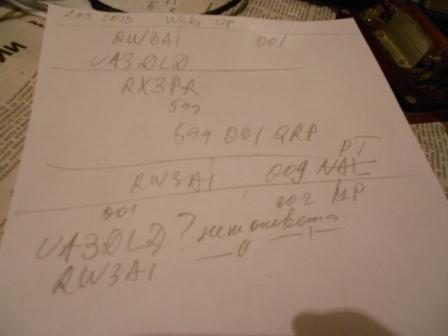 2.03.2013 Wake Up
RW3AI 001
UA3DLD
RX3PR
599
599 001 QRP
PT
RW3AI 009 NAL
001 002 MP
UA3DLD ? нет ответа
RW3AI — " — " —